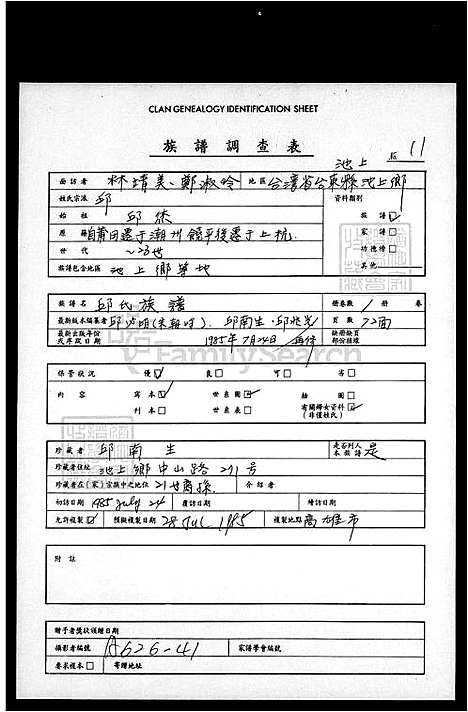 CLAN GENEALOGY IDENTIFICATION SHEET
族譜調查表
池上 11
面訪者 林靖美、鄭淑玲 地區 台灣省台東縣池上鄉
姓氏宗派 邱 資料類別
始祖 邱 族譜
原籍 自莆田遷于潮州饒平後遷于上杭 家譜
世代 ~23世 功德榜
族譜包含地區 池上鄉等地 其他
族譜名 邱氏族譜 册卷數 1 册 卷
最新版本編纂者 邱 明(朱 時). 邱南生.邱兆光 頁數 72面
最新出版年份或序跋日期 1985年7月24日 缺册缺頁部份條縷
FamilySearch
保管狀況 優 良 可 劣
內容 寫本 世系圖 插圖
刊本 世系表 有關婦女資料(非僅姓氏)
珍藏者 邱南生 是否列入本族譜 是
珍藏者住址 池上鄉中山路271号
珍藏者在(家)宗族中之地位 21世裔孫 介紹者
初訪日期 1985 July 24 覆訪日期 轉訪日期
允許複製 預擬複製日期 28 Jul. 1985 複製地點 高雄市
附註
贈予者獎狀頒贈日期
攝影者編號 A626-41 家譜學會編號
要求複本 寄贈地址